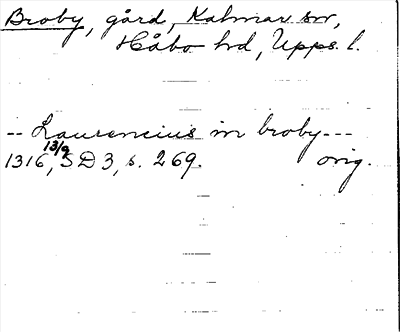 Broby, gård, Kalmar sn,
Håbo hd, Upps. l.
-- Laurencius in broby ---
1316, 13/9 SD 3, s. 269. orig.